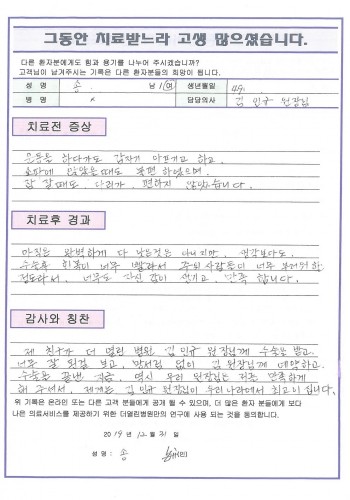 그동안 치료받느라 고생 많으셨습니다.
다른 환자분에게도 힘과 용기를 나누어 주시겠습니까?
고객님이 남겨주시는 기록은 다른 환자분들의 희망이 됩니다.
성 명 송 남 / 여 생년월일 49.
병 명 x 담당의사 김민규 원장님
치료전 증상
운동을 하다가도 갑자기 아프기고 하고,
쇼파에 앉았을때도 불편 하였으며
잠 잘때도, 다리가 편하지 않았습니다.
치료후 경과
아직은 완벽하게 다 나은것은 아니지만, 생각보다도
수술후 회복이 너무 빨라서 주위 사람들이 너무 부러워 할
정도라서, 너무도 자신감이 생기고 만족 합니다.
감사와 칭찬
제 친구가 더 열린 병원 김민규 원장님께 수술을 받고
너무 잘 된걸 보고, 망서림 없이 김 원장님께 예약하고
수술을 끝낸 역시 우리 원장님은 저를 만족하게
해 주셔서, 제게는 김민규 원장님이 우리나라에서 최고이십니다.
위 기록은 온라인 또는 다른 고객 분들에게 공개 될 수 있으며, 더 많은 환자 분들에게 보다
나은 의료서비스를 제공하기 위한 더열린병원만의 연구에 사용 되는 것을 동의합니다.
2019 년 12 월 31 일
성 명 : 송